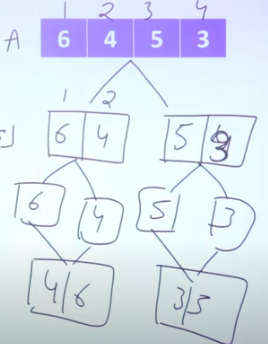 1 2 3 4
A 6 4 5 3
1 2
6 4 5 3
6 4 5 3
4 6 3 5